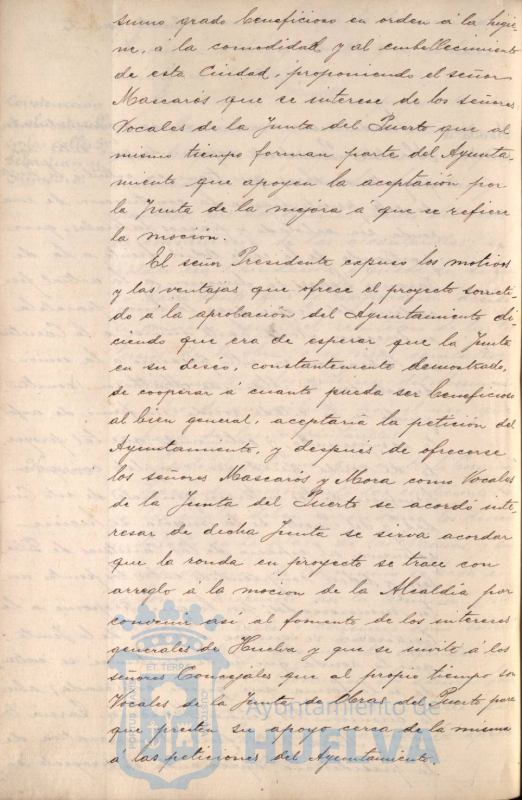 sumo grado beneficioso en orden á la higie-
ne, á la comodidad y al embellecimiento
de esta Ciudad, proponiendo el señor
Mascarós que se interese de los señores
Vocales de la Junta del Puerto que al
mismo tiempo forman parte del Ayunta-
miento que apoyen la aceptación por
la Junta de la mejora á que se refiere
la moción.
El señor Presidente expuso los motivos
y las ventajas que ofrece el proyecto someti-
do á la aprobación del Ayuntamiento di-
ciendo que era de esperar que la Junta
en su deseo, constantemente demostrado,
de cooperar á cuanto pueda ser beneficioso
al bien general, aceptaria la petición del
Ayuntamiento, y después de ofrecerse
los señores Mascarós y Mora como Vocales
de la Junta del Puerto se acordó inte-
resar de dicha Junta se sirva acordar
que la ronda en proyecto se trace con
arreglo á la mocion de la Alcaldía por
convenir asi al fomento de los intereses
generales de Huelva y que se invite á los
señores Concejales que al propio tiempo son
Vocales de la Junta de Obras del Puerto para
que presten su apoyo cerca de la misma
á las peticiones del Ayuntamiento.
ET TERRAE
PORTUS MARIS
CUSTODIA
Ayuntamiento de
HUELVA